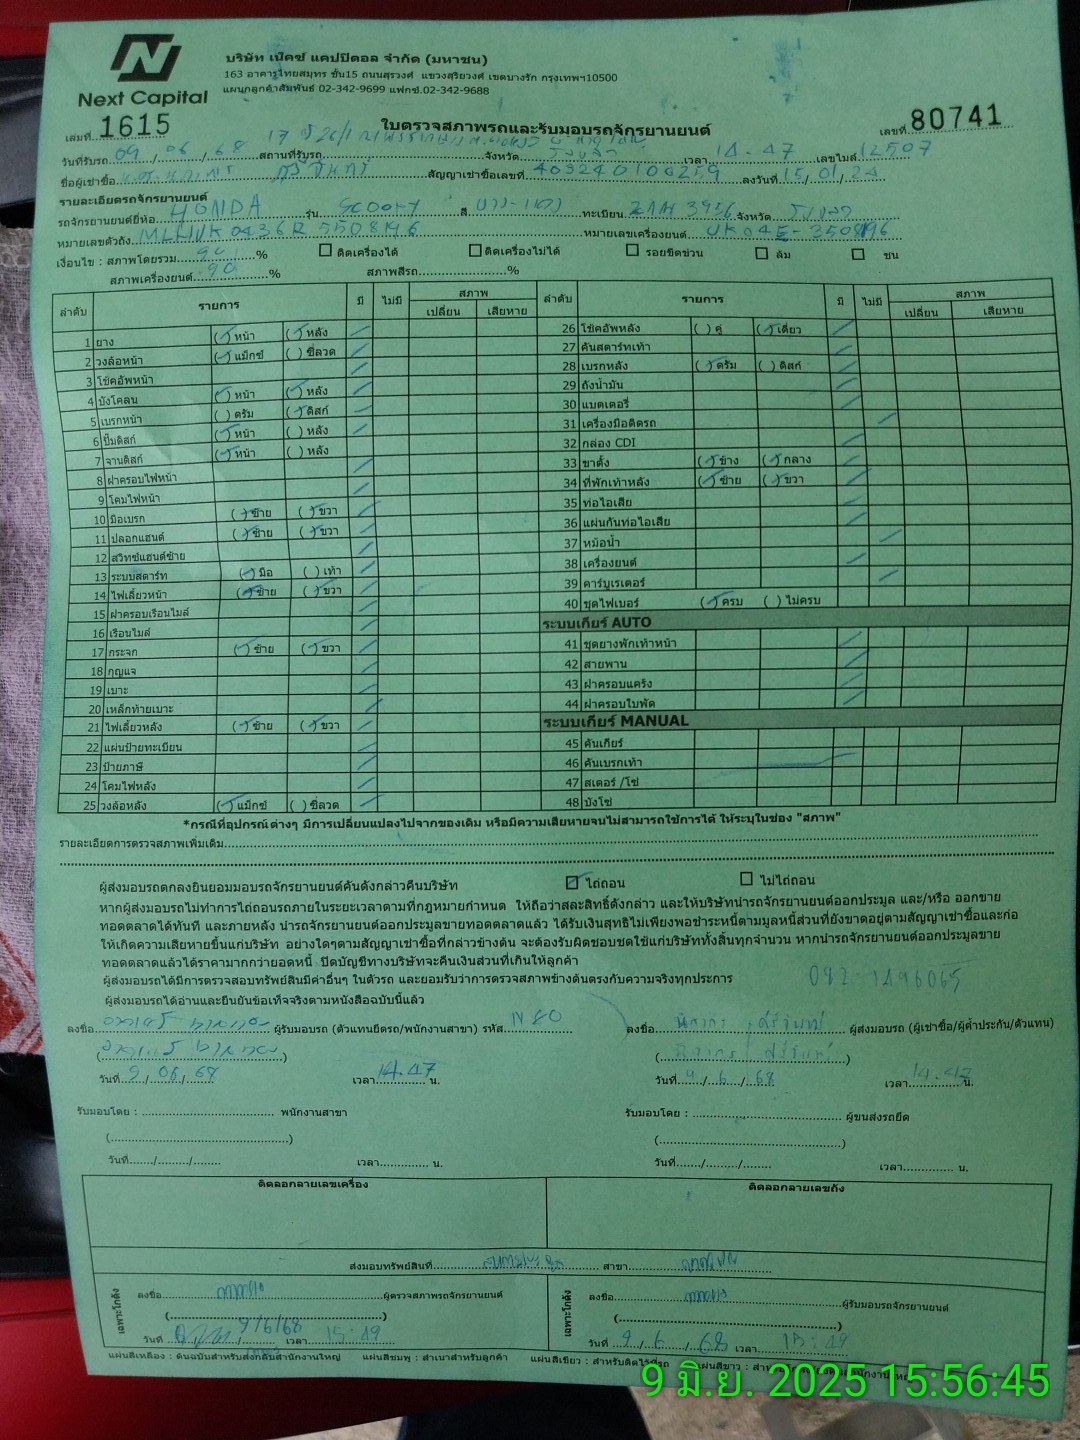 Next Capital
บริษัท เน็คซ์ แคปปิตอล จำกัด (มหาชน)
163 อาคารไทยสมุทร ชั้น15 ถนนสุรวงศ์ แขวงสุริยวงศ์ เขตบางรัก กรุงเทพฯ10500
แผนกลูกค้าสัมพันธ์ 02-342-9699 แฟกซ์.02-342-9688
เล่มที่ 1615
ใบตรวจสภาพรถและรับมอบรถจักรยานยนต์
เลขที่ 80741
วันที่รับรถ 09/06/68 สถานที่รับรถ จังหวัด เวลา 14-47 เลขไมล์ 12507
ชื่อผู้เช่าซื้อ สัญญาเช่าซื้อเลขที่ 403240100259 ลงวันที่ 15/01/24
รายละเอียดรถจักรยานยนต์
รถจักรยานยนต์ยี่ห้อ HONDA รุ่น Scoopy สี ทะเบียน 3956 จังหวัด
หมายเลขตัวถัง หมายเลขเครื่องยนต์
เงื่อนไข : สภาพโดยรวม 90 % ติดเครื่องได้ ติดเครื่องไม่ได้ รอยขีดข่วน ล้ม ชน
สภาพเครื่องยนต์ 90 % สภาพสีรถ %
ลำดับ รายการ มี ไม่มี สภาพ เปลี่ยน เสียหาย
1 ยาง (✓) หน้า (✓) หลัง
2 วงล้อหน้า (✓) แม็กซ์ ( ) ซี่ลวด
3 โช้คอัพหน้า
4 บังโคลน (✓) หน้า (✓) หลัง
5 เบรกหน้า ( ) ดรัม (✓) ดิสก์
6 ปั๊มดิสก์ (✓) หน้า ( ) หลัง
7 จานดิสก์ (✓) หน้า ( ) หลัง
8 ฝาครอบไฟหน้า
9 โคมไฟหน้า
10 มือเบรก (✓) ซ้าย (✓) ขวา
11 ปลอกแฮนด์ (✓) ซ้าย (✓) ขวา
12 สวิทซ์แฮนด์ซ้าย
13 ระบบสตาร์ท (✓) มือ ( ) เท้า
14 ไฟเลี้ยวหน้า (✓) ซ้าย (✓) ขวา
15 ฝาครอบเรือนไมล์
16 เรือนไมล์
17 กระจก (✓) ซ้าย (✓) ขวา
18 กุญแจ
19 เบาะ
20 เหล็กท้ายเบาะ
21 ไฟเลี้ยวหลัง (✓) ซ้าย (✓) ขวา
22 แผ่นป้ายทะเบียน
23 ป้ายภาษี
24 โคมไฟหลัง
25 วงล้อหลัง (✓) แม็กซ์ ( ) ซี่ลวด
ลำดับ รายการ มี ไม่มี สภาพ เปลี่ยน เสียหาย
26 โช้คอัพหลัง ( ) คู่ (✓) เดี่ยว
27 คันสตาร์ทเท้า
28 เบรกหลัง (✓) ดรัม ( ) ดิสก์
29 ถังน้ำมัน
30 แบตเตอรี่
31 เครื่องมือติดรถ
32 กล่อง CDI
33 ขาตั้ง (✓) ข้าง (✓) กลาง
34 ที่พักเท้าหลัง (✓) ซ้าย (✓) ขวา
35 ท่อไอเสีย
36 แผ่นกันท่อไอเสีย
37 หม้อน้ำ
38 เครื่องยนต์
39 คาร์บูเรเตอร์
40 ชุดไฟเบอร์ (✓) ครบ ( ) ไม่ครบ
ระบบเกียร์ AUTO
41 ชุดยางพักเท้าหน้า
42 สายพาน
43 ฝาครอบแคร้ง
44 ฝาครอบใบพัด
ระบบเกียร์ MANUAL
45 คันเกียร์
46 คันเบรกเท้า
47 สเตอร์ /โซ่
48 บังโซ่
*กรณีที่อุปกรณ์ต่างๆ มีการเปลี่ยนแปลงไปจากของเดิม หรือมีความเสียหายจนไม่สามารถใช้การได้ ให้ระบุในช่อง "สภาพ"
รายละเอียดการตรวจสภาพเพิ่มเติม
ผู้ส่งมอบรถตกลงยินยอมมอบรถจักรยานยนต์คันดังกล่าวคืนบริษัท ไถ่ถอน ไม่ไถ่ถอน
หากผู้ส่งมอบรถไม่ทำการไถ่ถอนรถภายในระยะเวลาตามที่กฎหมายกำหนด ให้ถือว่าสละสิทธิ์ดังกล่าว และให้บริษัทนำรถจักรยานยนต์ออกประมูล และ/หรือ ออกขาย
ทอดตลาดได้ทันที และภายหลัง นำรถจักรยานยนต์ออกประมูลขายทอดตลาดแล้ว ได้รับเงินสุทธิไม่เพียงพอชำระหนี้ตามมูลหนี้ส่วนที่ยังขาดอยู่ตามสัญญาเช่าซื้อและก่อ
ให้เกิดความเสียหายขึ้นแก่บริษัท อย่างใดๆตามสัญญาเช่าซื้อที่กล่าวข้างต้น จะต้องรับผิดชอบชดใช้แก่บริษัททั้งสิ้นทุกจำนวน หากนำรถจักรยานยนต์ออกประมูลขาย
ทอดตลาดแล้วได้ราคามากกว่ายอดหนี้ ปิดบัญชีทางบริษัทจะคืนเงินส่วนที่เกินให้ลูกค้า
ผู้ส่งมอบรถได้มีการตรวจสอบทรัพย์สินมีค่าอื่นๆ ในตัวรถ และยอมรับว่าการตรวจสภาพข้างต้นตรงกับความจริงทุกประการ 082 1496065
ผู้ส่งมอบรถได้อ่านและยืนยันข้อเท็จจริงตามหนังสือฉบับนี้แล้ว
ลงชื่อ ผู้รับมอบรถ (ตัวแทนยึดรถ/พนักงานสาขา) รหัส N80 ลงชื่อ ผู้ส่งมอบรถ (ผู้เช่าซื้อ/ผู้ค้ำประกัน/ตัวแทน)
วันที่ 9/06/68 เวลา 14.47 น. วันที่ 9/6/68 เวลา 14-47 น.
รับมอบโดย : พนักงานสาขา รับมอบโดย : ผู้ขนส่งรถยึด
วันที่ / / เวลา น. วันที่ / / เวลา น.
ติดลอกลายเลขเครื่อง ติดลอกลายเลขถัง
ส่งมอบทรัพย์สินที่ สาขา
เฉพาะโกดัง ลงชื่อ ผู้ตรวจสภาพรถจักรยานยนต์ เฉพาะโกดัง ลงชื่อ ผู้รับมอบรถจักรยานยนต์
วันที่ 9/6/68 เวลา 15:49 วันที่ 9/6/68 เวลา 15:49
แผ่นสีเหลือง : ต้นฉบับสำหรับส่งกลับสำนักงานใหญ่ แผ่นสีชมพู : สำเนาสำหรับลูกค้า แผ่นสีเขียว : สำหรับติดไว้ที่รถ แผ่นสีขาว :
9 มิ.ย. 2025 15:56:45